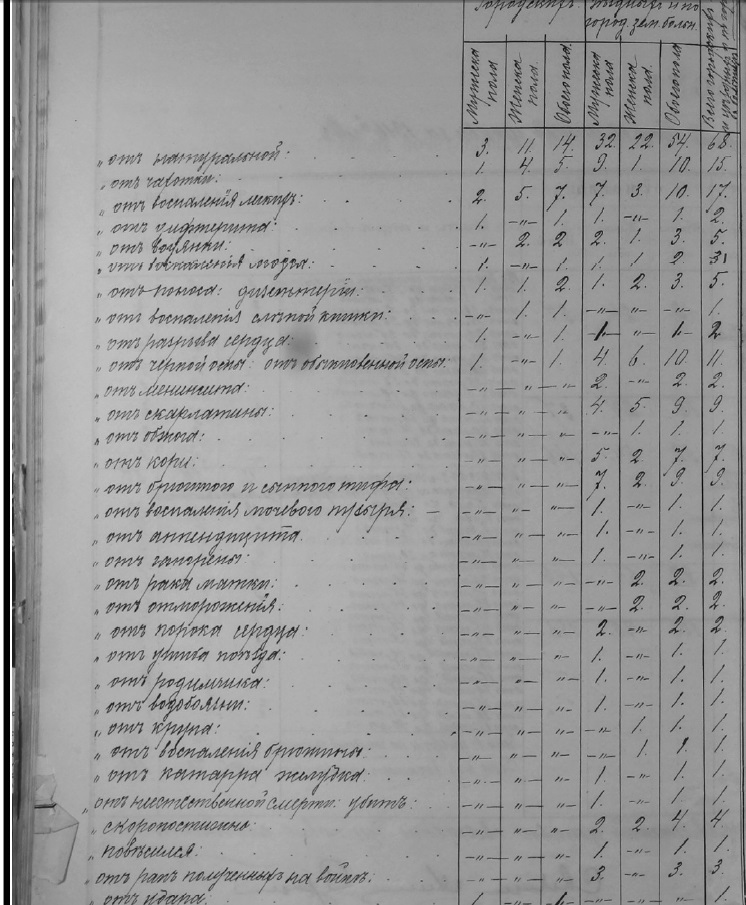 Городскихъ. | и по
город. зем. больн. | Всего городскихъ
Мужска пола | Женска пола. | Обоего пола. | Мужска пола | Женска пола. | Обоего пола
„ отъ натуральной: 3. 11. 14. 32. 22. 54. 68.
„ отъ чахотки: 1. 4. 5. 9. 1. 10. 15.
„ отъ воспаленія легкихъ: 2. 5. 7. 7. 3. 10. 17.
„ отъ дифтерита: 1. —„— 1. 1. —„— 1. 2.
„ отъ водянки: —„— 2. 2 2. 1. 3. 5.
„ отъ воспаленія мозга: 1. —„— 1. 1. 1 2 3
„ отъ поноса: дизентеріи: 1. 1. 2. 1. 2. 3. 5.
„ отъ воспаленія слѣпой кишки: —„— 1. 1. —„— —„— —„— 1.
„ отъ разрыва сердца: 1. —„— 1. 1 —„— 1 2
„ отъ черной оспы: отъ обыкновенной оспы: 1. —„— 1. 4. 6. 10. 11.
„ отъ менингита: —„— —„— —„— 2. —„— 2. 2.
„ отъ скарлатины: —„— —„— —„— 4. 5. 9. 9.
„ отъ обжога: —„— —„— —„— —„— 1. 1. 1.
„ отъ кори: —„— —„— —„— 5. 2. 7. 7.
„ отъ брюшного и сыпного тифа: —„— —„— —„— 7. 2. 9. 9.
„ отъ воспаленія мочевого пузыря: —„— —„— —„— 1. —„— 1. 1.
„ отъ аппендицита. —„— —„— —„— 1. —„— 1. 1.
„ отъ гангрены: —„— —„— —„— 1. —„— 1. 1.
„ отъ рака матки: —„— —„— —„— —„— 2. 2. 2.
„ отъ отмороженія: —„— —„— —„— —„— 2. 2. 2.
„ отъ порока сердца: —„— —„— —„— 2. —„— 2. 2.
„ отъ ушиба поѣзда: —„— —„— —„— 1. —„— 1. 1.
„ отъ родимчика: —„— —„— —„— 1. —„— 1. 1.
„ отъ водобоязни: —„— —„— —„— 1. —„— 1. 1.
„ отъ крупа: —„— —„— —„— —„— 1. 1. 1.
„ отъ воспаленія брюшины: —„— —„— —„— —„— 1. 1. 1.
„ отъ катарра желудка: —„— —„— —„— 1. —„— 1. 1.
„ отъ неестественной смерти: убитъ: —„— —„— —„— 1. —„— 1. 1.
„ скоропостижно: —„— —„— —„— 2. 2. 4. 4.
„ повѣсился: —„— —„— —„— 1. —„— 1. 1.
„ отъ ранъ полученныхъ на войнѣ. —„— —„— —„— 3. —„— 3. 3.
„ отъ удара. 1. —„— 1. —„— —„— —„— 1.